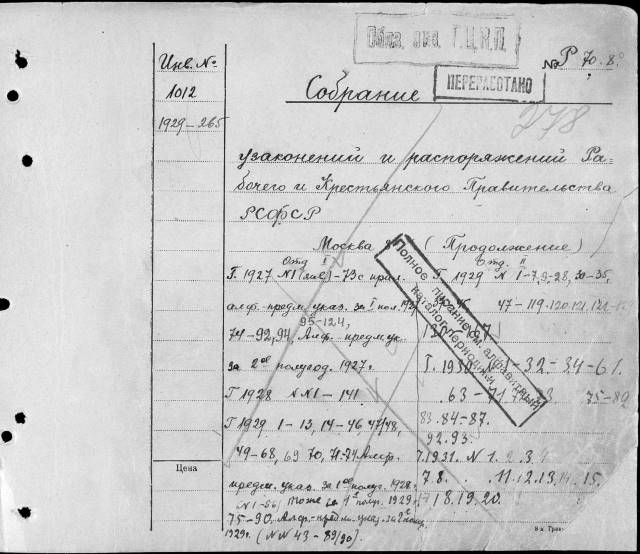 Инв. №
1012
1929-265
Цена
Г.Ц.К.П.
№ Р 70.8
ПЕРЕРАБОТАНО
Собрание
278
узаконений и распоряжений Ра-
бочего и Крестьянского Правительства
РСФСР
Москва 8°
Отд. I
Г. 1927 N1 (янв.)-73 с прил.
алф.-предм. указ. за I пол. 1927
95-124,
74-92, 94, Алф. предм. ук.
за 2ое полугод. 1927 г.
Г 1928 N N 1 - 141
Г 1929 1-13, 14-46, 47/48,
49-68, 69 70, 71-74 Алф.
предм. указ. за 1ое полуг. 1928.
N 1-56, Тоже за 1ое полуг. 1929 г.
75-90. Алф.-предм. указ. за 2ое
1929 г. (NN 43 - 89/90)
(Продолжение)
Отд. II
Г. 1929 N 1-7, 9-28, 30-35,
47-119. 120. 121.
Г. 1930 N 1-32-34-61.
63-71 75-82
83. 84-87.
92. 93.
Г. 1931. N 1. 2. 3.
7. 8. 11. 12. 13. 14. 15.
17 18. 19. 20.
Полное описание см. алфавитный
каталог периодики